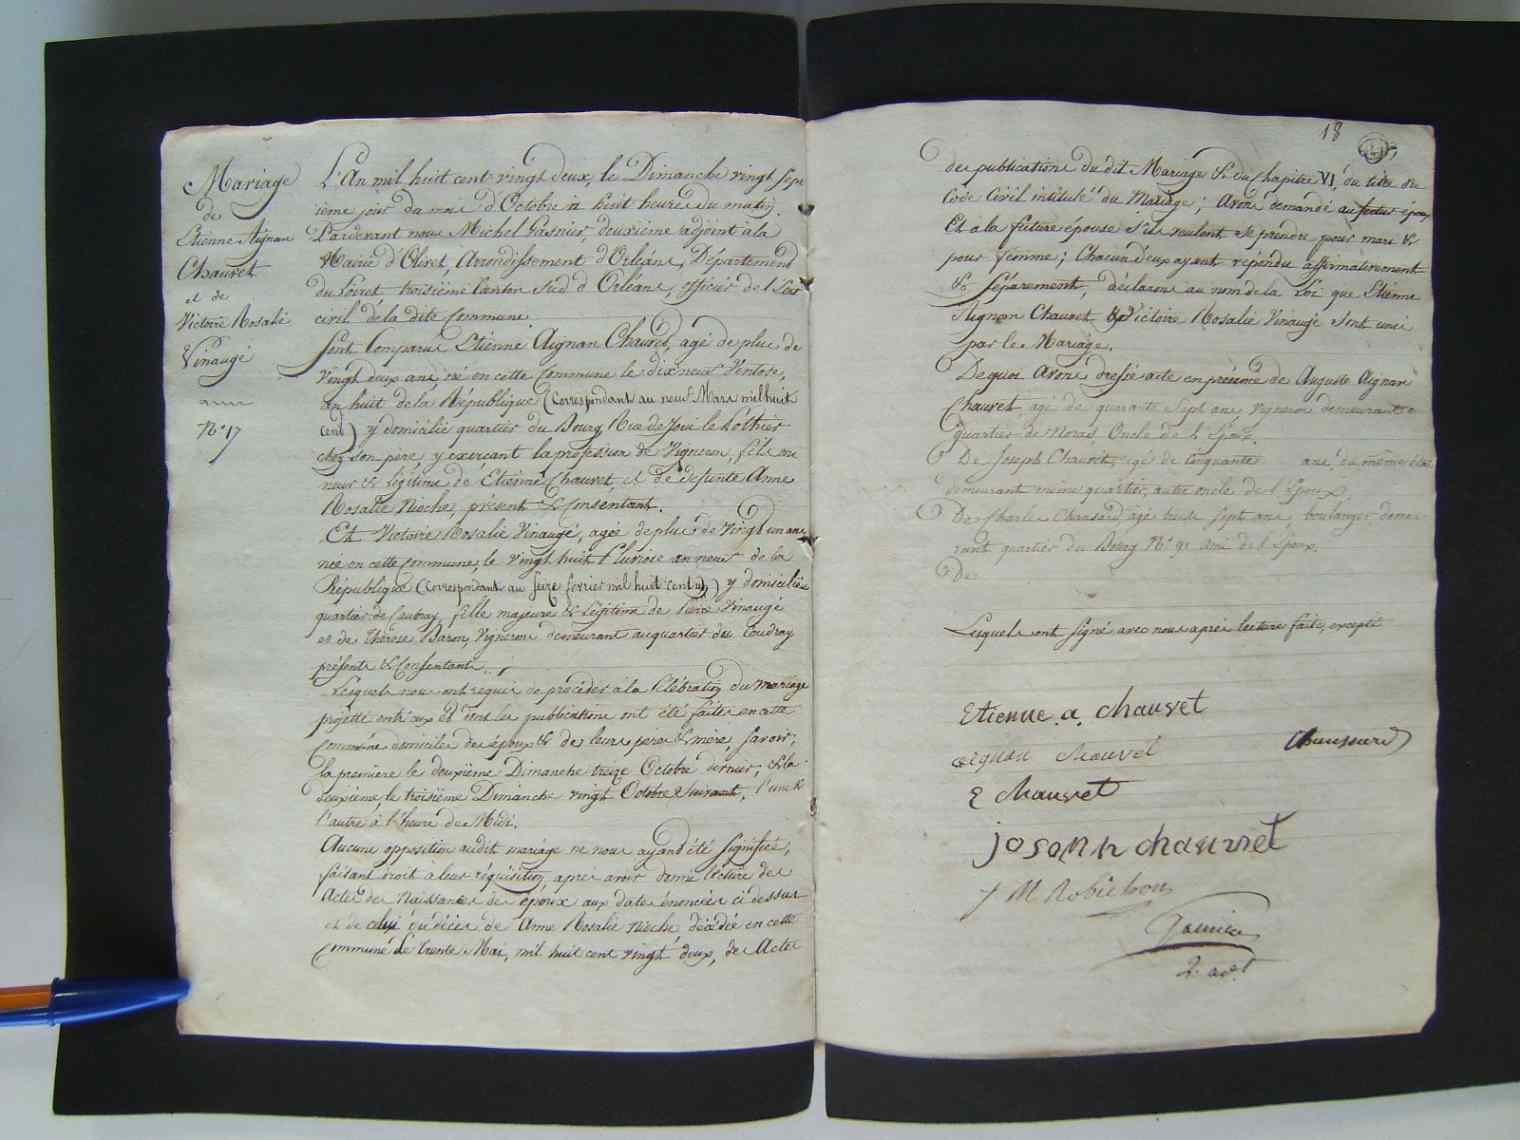 Mariage
de
Etienne Aignan
Chauvet
et de
Victoire Rosalie
Vinauge
N° 17
L'An mil huit cent vingt deux, le Dimanche vingt sep
tième jour du mois d'Octobre à huit heures du matin.
Pardevant nous Michel Gasnier, deuxième adjoint à la
Mairie d'Olivet, Arrondissement d'Orléans, Département
du Loiret troisième Canton Sud d'Orléans, officier de l'Etat
civil de la dite Commune.
Sont Comparus Etienne Aignan Chauvet, agé de plus de
Vingt deux ans, né en cette Commune le dix neuf Ventose,
an huit de la République (Correspondant au neuf Mars mil huit
cent) y domicilié quartier du Bourg Rue de
chez son père y exerçant la profession de Vigneron, fils mi
neur & légitime de Etienne Chauvet et de defunte Anne
Rosalie Rioche, présent & Consentant.
Et Victoire Rosalie Vinauge, agée de plus de Vingt un ans
née en cette Commune, le vingt huit Pluviose an neuf de la
République (Correspondant au seize fevrier mil huit cent un) y domiciliée
quartier de Caubray, fille majeure & légitime de Vinauge
et de Thérese Baron, Vignerons demeurant au quartier du Coudray
présents & Consentants.
Lesquels nous ont requis de procéder à la Célébration du Mariage
projetté entr'eux et dont les publications ont été faites en cette
Commune domicile des époux & de leurs pères & mères, Savoir;
la première le deuxième Dimanche treize Octobre dernier, & la
deuxième, le troisième Dimanche vingt Octobre Suivant, l'une &
l'autre à l'heure de Midi.
Aucune opposition audit mariage ne nous ayant été Signifiée,
faisant droit à leur réquisition, après avoir donné lecture des
Actes de Naissances des époux aux dates énoncées ci dessus
et de celui du décès de Anne Rosalie Rioche décédée en cette
Commune le trente Mai, mil huit cent vingt deux, des Actes
18
des publications du dit Mariage & du Chapitre VI, du titre du
Code Civil intitulé du Mariage; Avons demandé au futur époux
Et à la future épouse s'ils veulent se prendre pour mari &
pour femme; Chacun d'eux ayant répondu affirmativement
& Séparement, déclarons au nom de la Loi que Etienne
Aignan Chauvet & Victoire Rosalie Vinauge sont unis
par le Mariage.
De quoi Avons dressé acte en présence de Auguste Aignan
Chauvet agé de quarante Sept ans, Vigneron demeurant
quartier de Oncle de l'Epoux.
De Joseph Chauvet, agé de Cinquante ans, du même état
demeurant même quartier, autre oncle de l'Epoux
De Charles agé trente Sept ans, boulanger, demeu
rant quartier du Bourg N° 91 Ami de l'Epoux.
De
Lesquels ont Signé avec nous après lecture faite, excepté
Etienne . a . chauvet
aignan chauvet
E Chauvet
joseph chauvet
J M Robichon
Gasnier
2. adjt